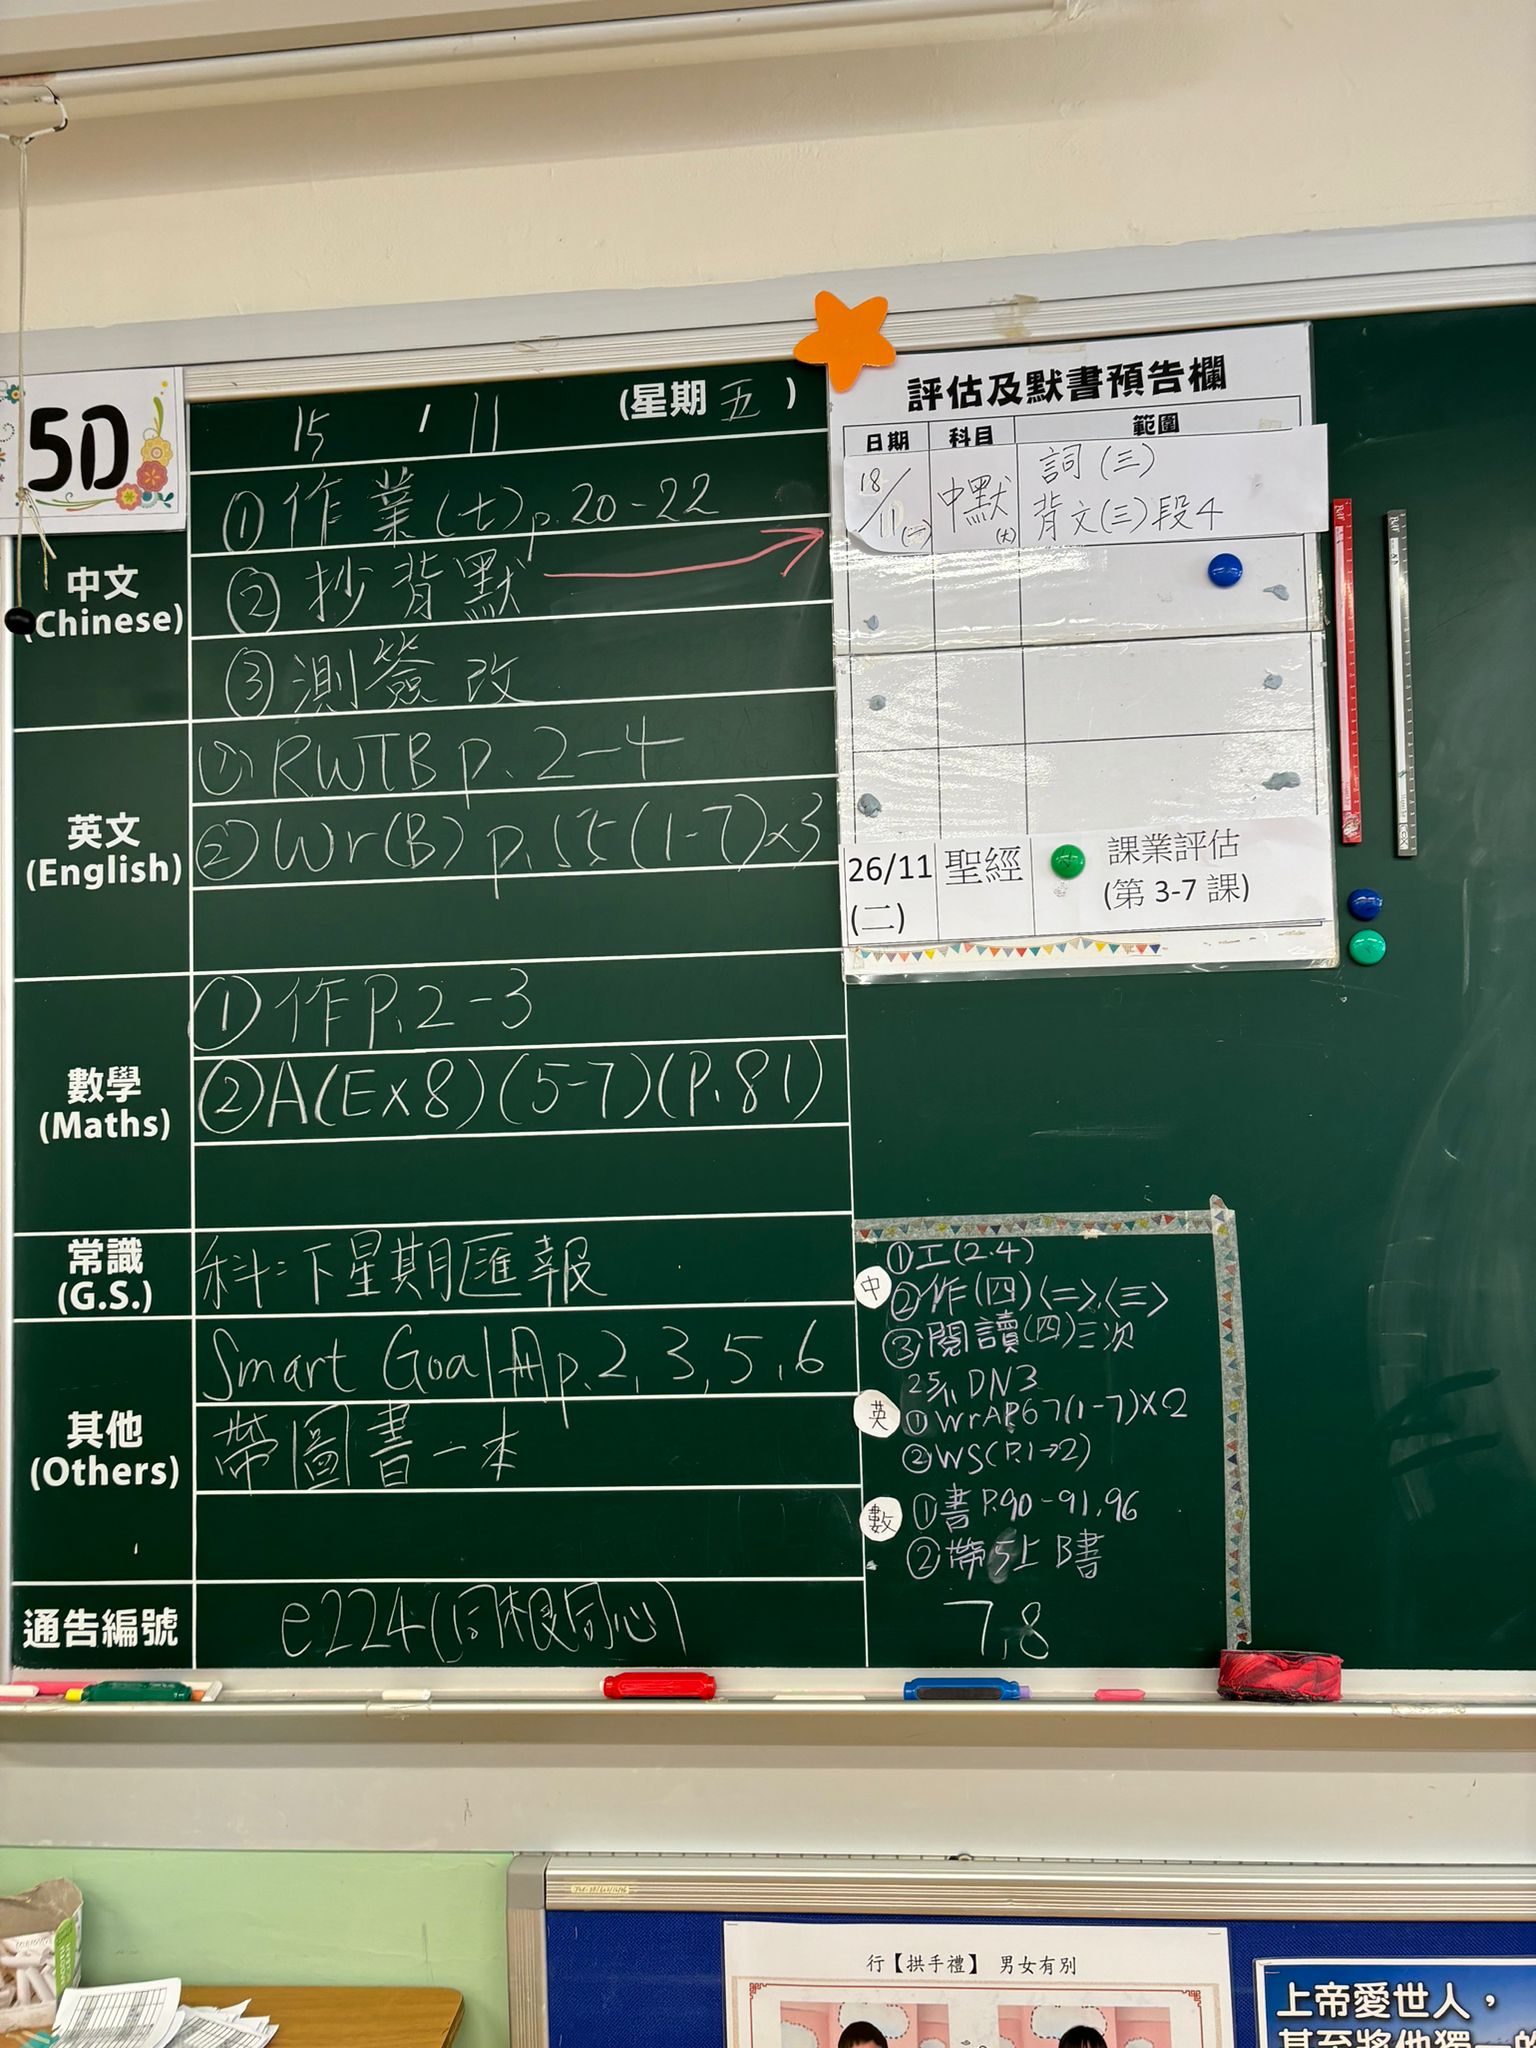 5D
15 / 11 (星期五)
中文
(Chinese)
①作業(七)p.20-22
②抄背默
③測簽改
英文
(English)
①RWTB p.2-4
②Wr(B) p.55(1-7)×3
數學
(Maths)
①作P.2-3
②A(Ex8)(5-7)(P.81)
常識
(G.S.)
科:下星期匯報
其他
(Others)
Smart Goal用p.2,3,5,6
帶圖書一本
通告編號
e224(同根同心)
7,8
評估及默書預告欄
日期 科目 範圍
18/11(一) 中默(大) 詞(三)
背文(三)段4
26/11 聖經 課業評估
(二) (第 3-7 課)
中
①工(2.4)
②作(四)〈二〉〈三〉
③閱讀(四)三次
英
DN3
①WrAP.67(1-7)×2
②WS(P.1→2)
數
①書P.90-91,96
②帶5上B書
行【拱手禮】 男女有別
上帝愛世人，
甚至將他獨一的